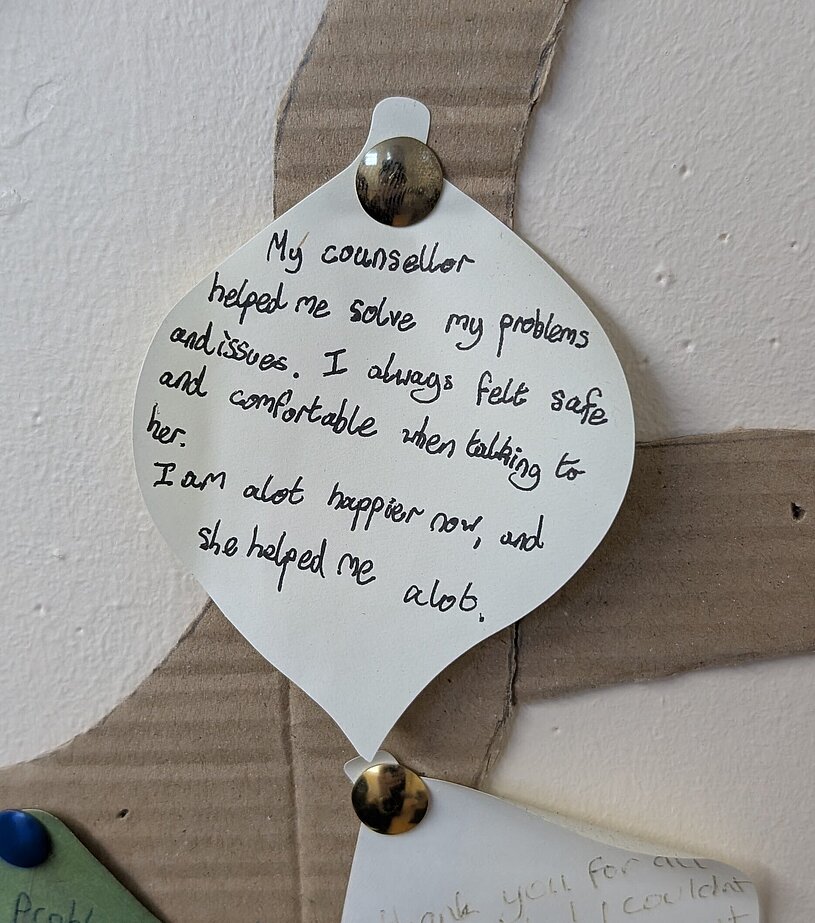 My counsellor
helped me solve my problems
and issues. I always felt safe
and comfortable when talking to
her.
I am alot happier now, and
she helped me alot.
Thank you for all
I couldnt